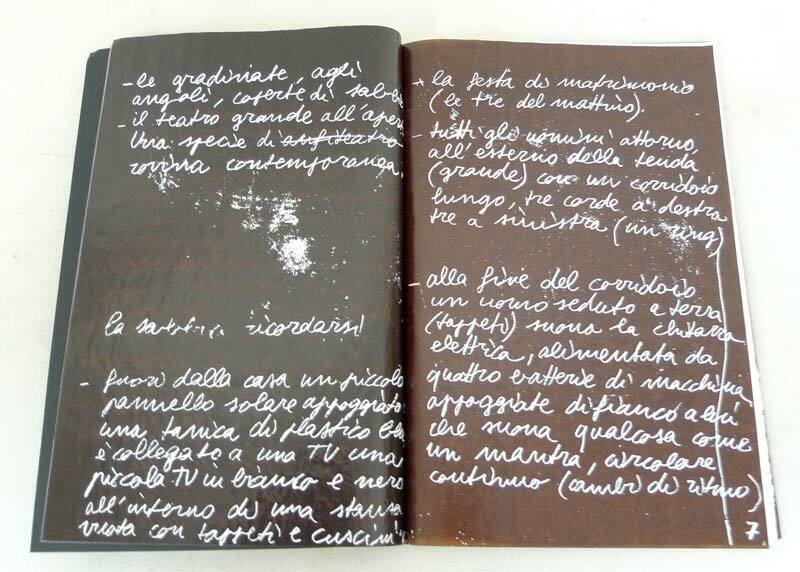 - le gradinate, agli
angoli, coperte di
- il teatro grande all'aper
Una specie di anfiteatro
rovina contemporanea.
la ricordarsi
- fuori dalla casa un piccolo
pannello solare appoggiato
una tanica di plastico
è collegato a una TV una
piccola TV in bianco e nero
all'interno di una stanza
vuota con tappeti e cuscini
- la festa di matrimonio
(le tre del mattino).
- tutti gli uomini attorno,
all'esterno della tenda
(grande) con un corridoio
lungo, tre corde a destra
tre a sinistra (un ring)
- alla fine del corridoio
un uomo seduto a terra
(tappeti) suona la chitarra
elettrica, alimentata da
quattro batterie di macchina
appoggiate di fianco a lui
che suona qualcosa come
un mantra, circolare
continuo (cambi di ritmo)
7